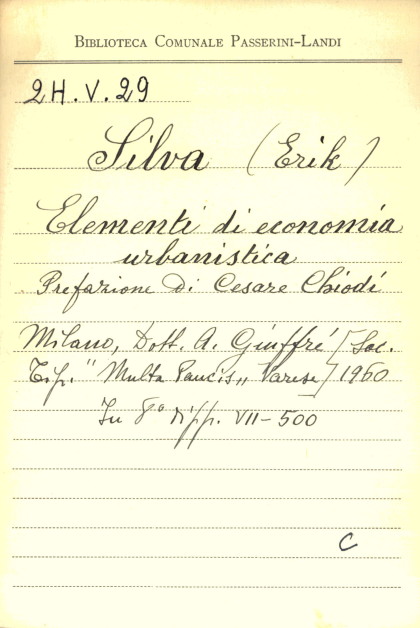 BIBLIOTECA COMUNALE PASSERINI-LANDI
2H.V.29
Silva (Erik)
Elementi di economia
urbanistica
Prefazione di Cesare Chiodi
Milano, Dott. A. Giuffré [Soc.
Tip. "Multa Paucis„ Varese] 1960
In 8° di pp. VII-500
C